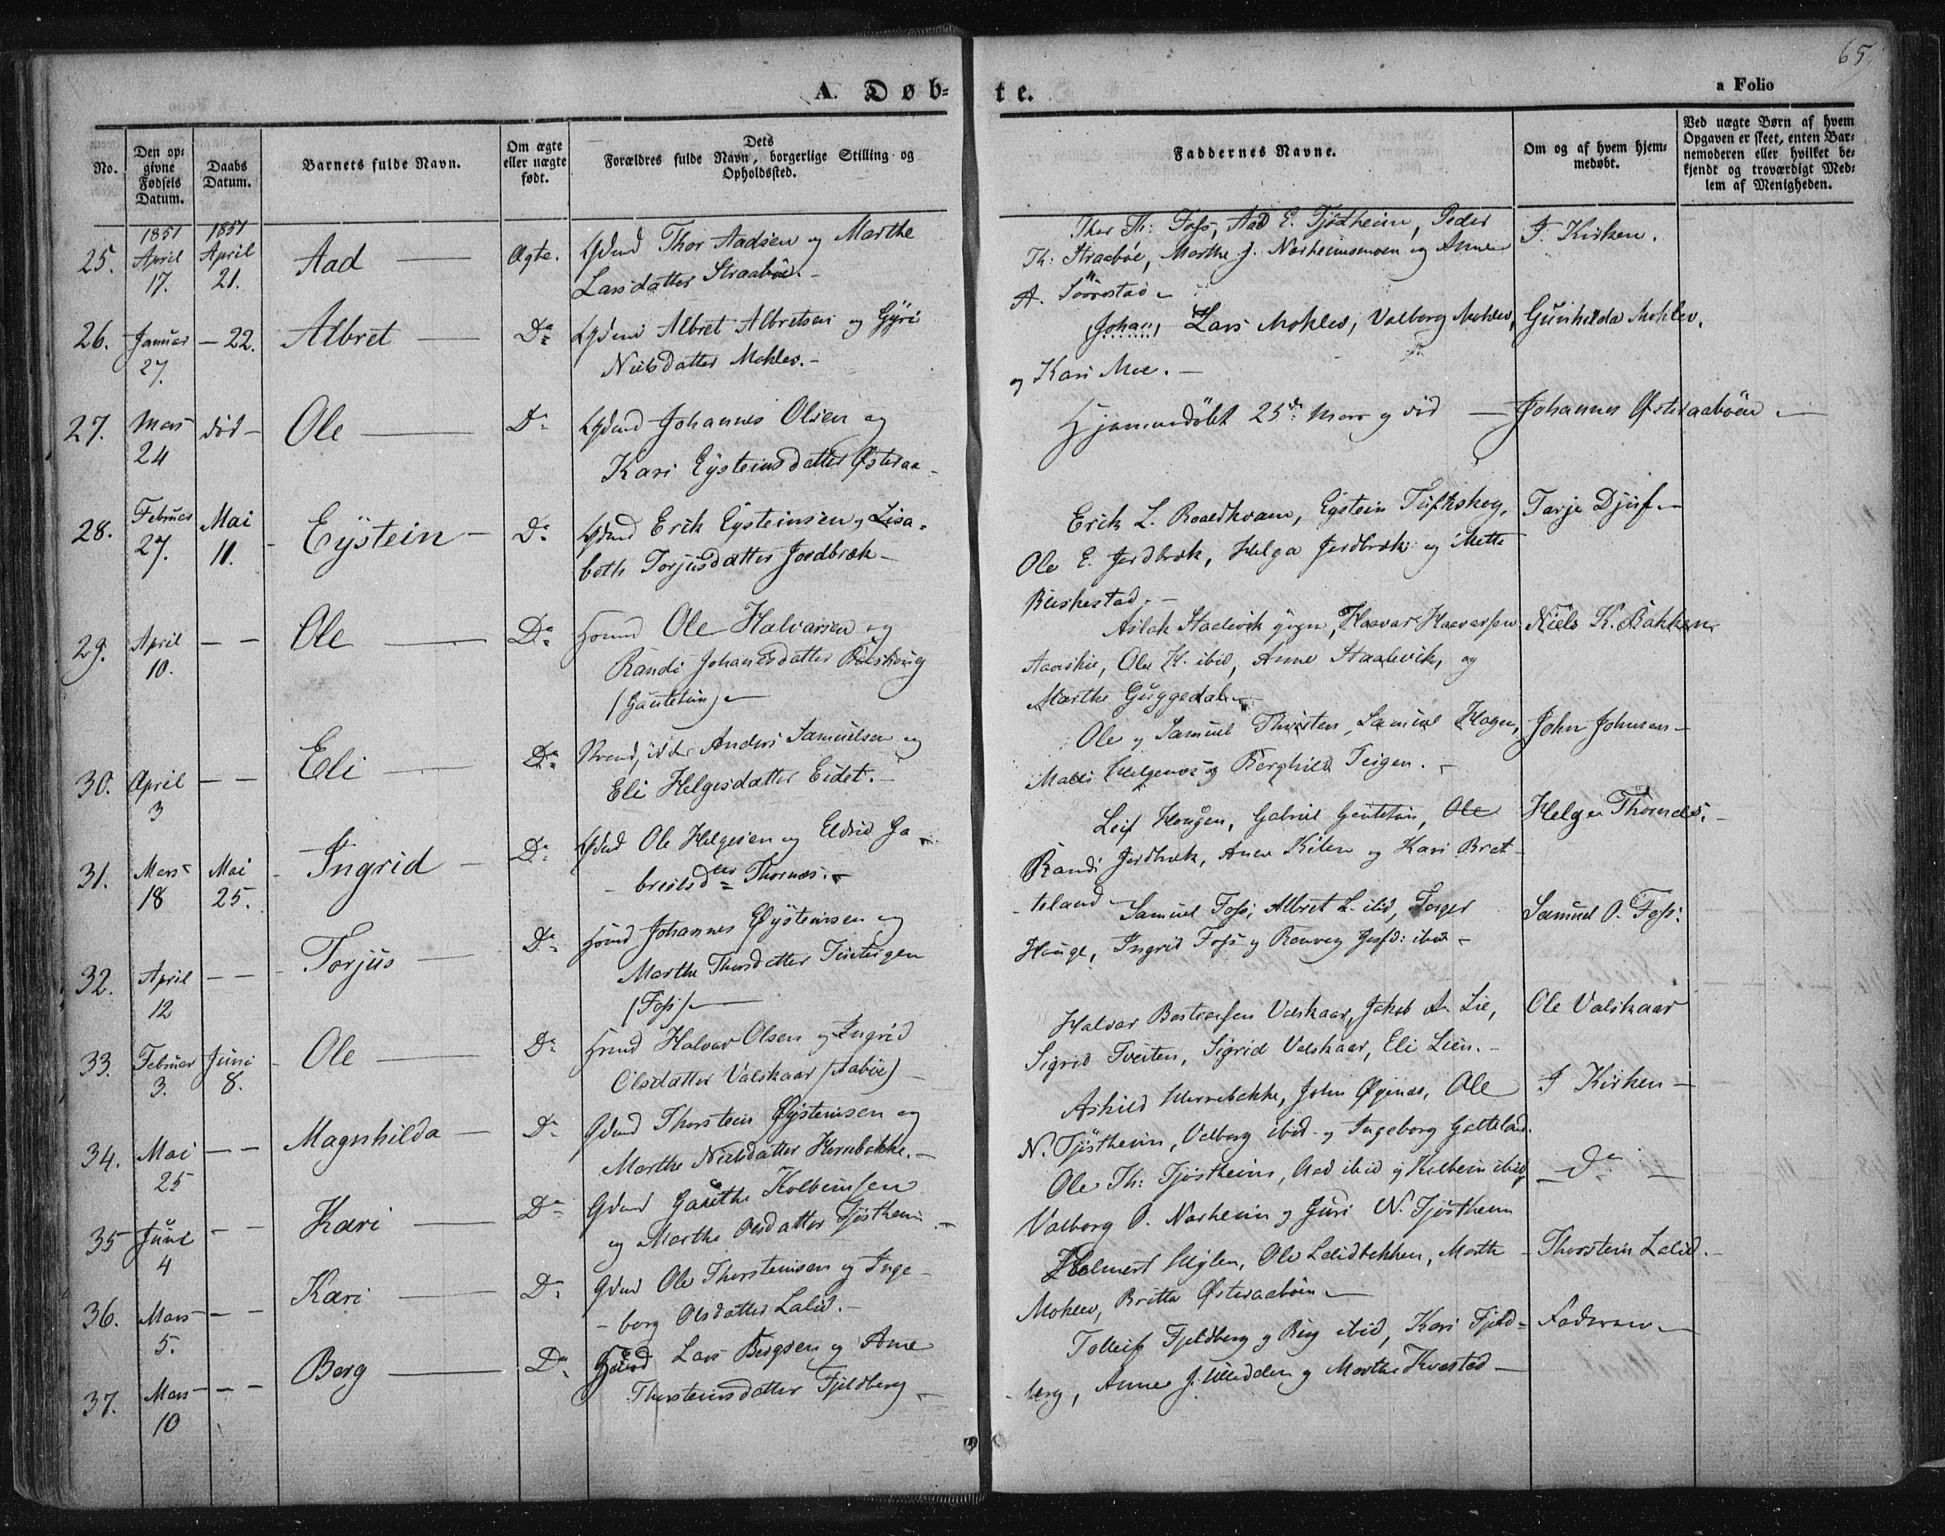 65
A. Døb-
te.
a Folio
No.
Den op-
givne
Fødsels
Datum.
Daabs
Datum.
Barnets fulde Navn.
Om ægte
eller uægte
født.
Dets
Forældres fulde Navn, borgerlige Stilling og
Opholdssted.
Faddernes Navne.
Om og af hvem hjem-
medøbt.
Ved uægte Børn af hvem
Opgaven er skeet, enten Bar-
nemoderen eller hvilket be-
kjendt og troværdigt Med-
lem af Menigheden.
25.
1851
April
17.
1851
April
21.
Aad
Ægte.
Thor Aadsen og Marthe
Larsdatter Straabøe.-
Thor Th: Foss, Aad E. Tjøstheim, Peder
Th: Straabøe, Marthe J. Norheimsmoen og Anne
A. Sørrestad
I Kirken.
26.
Januar
27.
- 22.
Albret
Do
Albret Albretsen og Gÿri
Nielsdatter Moklev.-
(Johan) Lars Moklev, Valborg Moklev,
og Kari Moe.-
Gunhilda Moklev.
27.
Mars
24
død-
Ole
Do
Johannes Olsen og
Kari Eÿsteinsdatter Østeraa-
Hjemmedøbt 25de Mars og død
Johannes Østeraabøen
28.
Februar
27.
Mai
11.
Eÿstein
Do
Erik Eysteinsen og Lisa-
beth Torjusdatter Jordbræk-
Erik L. Roaldkvam, Eystein
Ole E. Jordbræk, Helga Jordbræk og Mette
Buskestad.-
Tarje Djuf-
29.
April
10.
- -
Ole
Do
Ole Halvarsen og
Randi Johannesdatter
(Gautetun)-
Aslak Staalevik Haavar Haaversen
Ole H. ibid, Anne Staalevik, og
Marthe Guggedal
Niels K. Bakken
30.
April
3
- -
Eli
Do
Anders Samuelsen og
Eli Helgesdatter Eidet.-
Ole og Samuel Samuel Hagen,
Malli Helgenæs og Berghild Teigen.-
John Johnsen-
31.
Mars
18
Mai
25.
Ingrid
Do
Ole Helgesen og Eldrid Ga-
brielsd Thornæs.-
Leif Haugen, Gabriel Gautetun, Ole
Randi Jordbræk, Anna Kilen og Kari Bret-
teland
Helge Thornæs.
32.
April
12
- -
Torjus
Do
Johannes Eÿsteinsen og
Marthe Thorsdatter
(Foss)
Samuel Foss, Albret L. ibid, Torger
Hauge, Ingrid Foss og Ronveg ibid-
Samuel O. Foss.
33.
Februar
3.
Juni
8.
Ole
Do
Halvar Olsen og Ingrid
Olsdatter Valskaar (Aabøe)-
Halvar Valskaar, Jakob A. Lie,
Sigrid Tveiten, Sigrid Valskaar, Eli Lien.-
Ole Valskaar
34.
Mai
25
- -
Magnhilda
Do
Thorstein Øÿsteinsen og
Marthe Nielsdatter Herrebekke.-
Askild Herrebekke, John Øgenæs, Ole
N. Tjøstheim, Valborg ibid og Ingeborg Gatteland.
I Kirken-
35
Juni
4
-
Kari
Do
Gauthe Kolbeinsen
og Marthe Olsdatter Tjøstheim-
Ole Th: Tjøstheim, Aad ibid og Kolbein ibid,
Valborg O. Norheim og Guri N. Tjøstheim
Do
36.
Mars
5.
- -
Kari
Do
Ole Thorsteinsen og Inge-
borg Olsdatter Lalid.-
Helmert Ole Lalidbekken, Marthe
Moklev, Britta Østeraabøen-
Thorstein Lalid.-
37.
Mars
10
- -
Berg
Do
Lars Bergsen og Anne
Thorsteinsdatter Fjeldberg-
Tolleif Fjeldberg og Berg ibid, Kari Fjeld-
berg, Anne J. og Marthe Kvæstad-
Faderen-